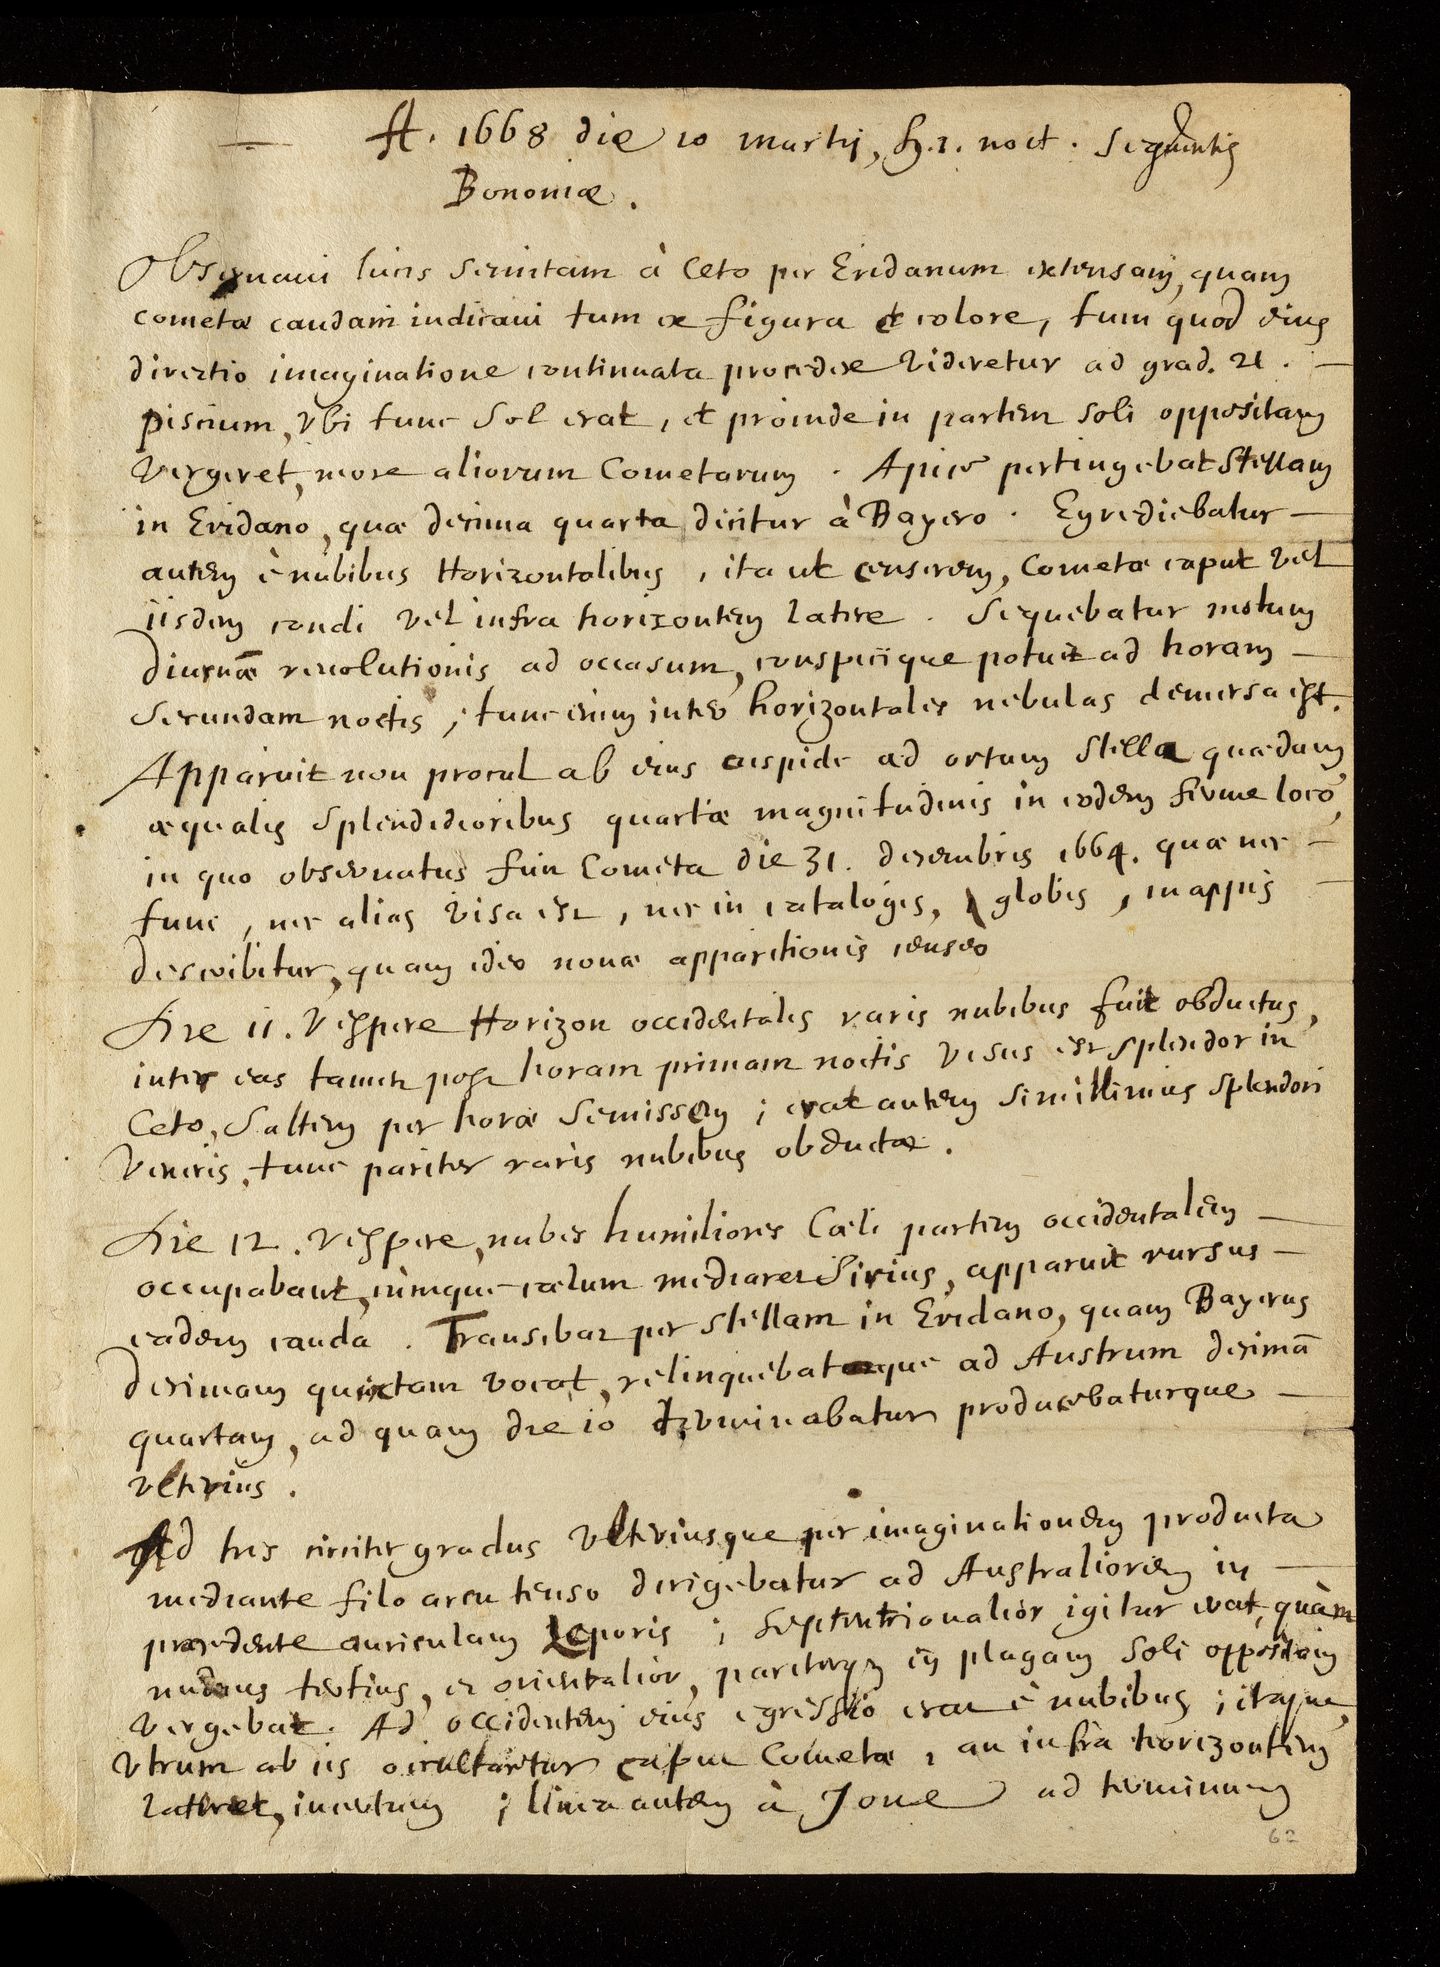 A. 1668 die 10 martij, h. 1. noct. sequentis
Bononiæ.
Obseruaui lucis semitam à Ceto per Eridanum extensam, quam
cometæ caudam indicaui tum ex figura et colore, tum quod eius
directio imaginatione continuata procedere videretur ad grad. 21.
piscium, vbi tunc Sol erat, et proinde in partem soli oppositam
vergeret, more aliorum Cometarum. Apice pertingebat stellam
in Eridano, quæ decima quarta dicitur à Bayero. Egrediebatur
autem è nubibus Horizontalibus, ita ut censerem, Cometæ caput vel
iisdem condi vel infra horizontem latere. Sequebatur motum
diurnæ reuolutionis ad occasum, conspicique potuit ad horam
secundam noctis, tunc enim inter horizontales nebulas demersa est.
Apparuit non procul ab eius cuspide ad ortum stella quædam
æqualis splendidioribus quartæ magnitudinis in eodem ferme loco,
in quo obseruatus fuit Cometa die 31. decembris 1664. quæ nec
tunc, nec alias visa est, nec in catalogis, globis, mappis
describitur, quam ideo nouæ apparitionis censeo
Die 11. vespere Horizon occidentalis raris nubibus fuit obductus,
inter eas tamen post horam primam noctis visus est splendor in
Ceto, saltem per horæ semissem; erat autem simillimus splendori
Veneris, tunc pariter raris nubibus obductæ.
Die 12. vespere, nubes humiliores Cæli partem occidentalem
occupabant, cùmque cælum mediaret Sirius, apparuit rursus
eadem cauda. Transibat per stellam in Eridano, quam Bayerus
decimam quintam vocat, relinquebatque ad Austrum decimã
quartam, ad quam die 10 terminabatur producebaturque
vlterius.
Ad tres circiter gradus vlteriusque per imaginationem producta
mediante filo arcu tenso dirigebatur ad Australiorem in
præcedente auriculam Leporis; septentrionalior igitur erat, quàm
nudius tertius, et orientalior, pariterque in plagam Soli oppositam
vergebat. Ad occidentem eius egressio erat è nubibus; itaque,
vtrum ab iis occultaretur caput Cometæ, an infra horizontem
lateret, incertum; linea autem à Joue ad terminum
62